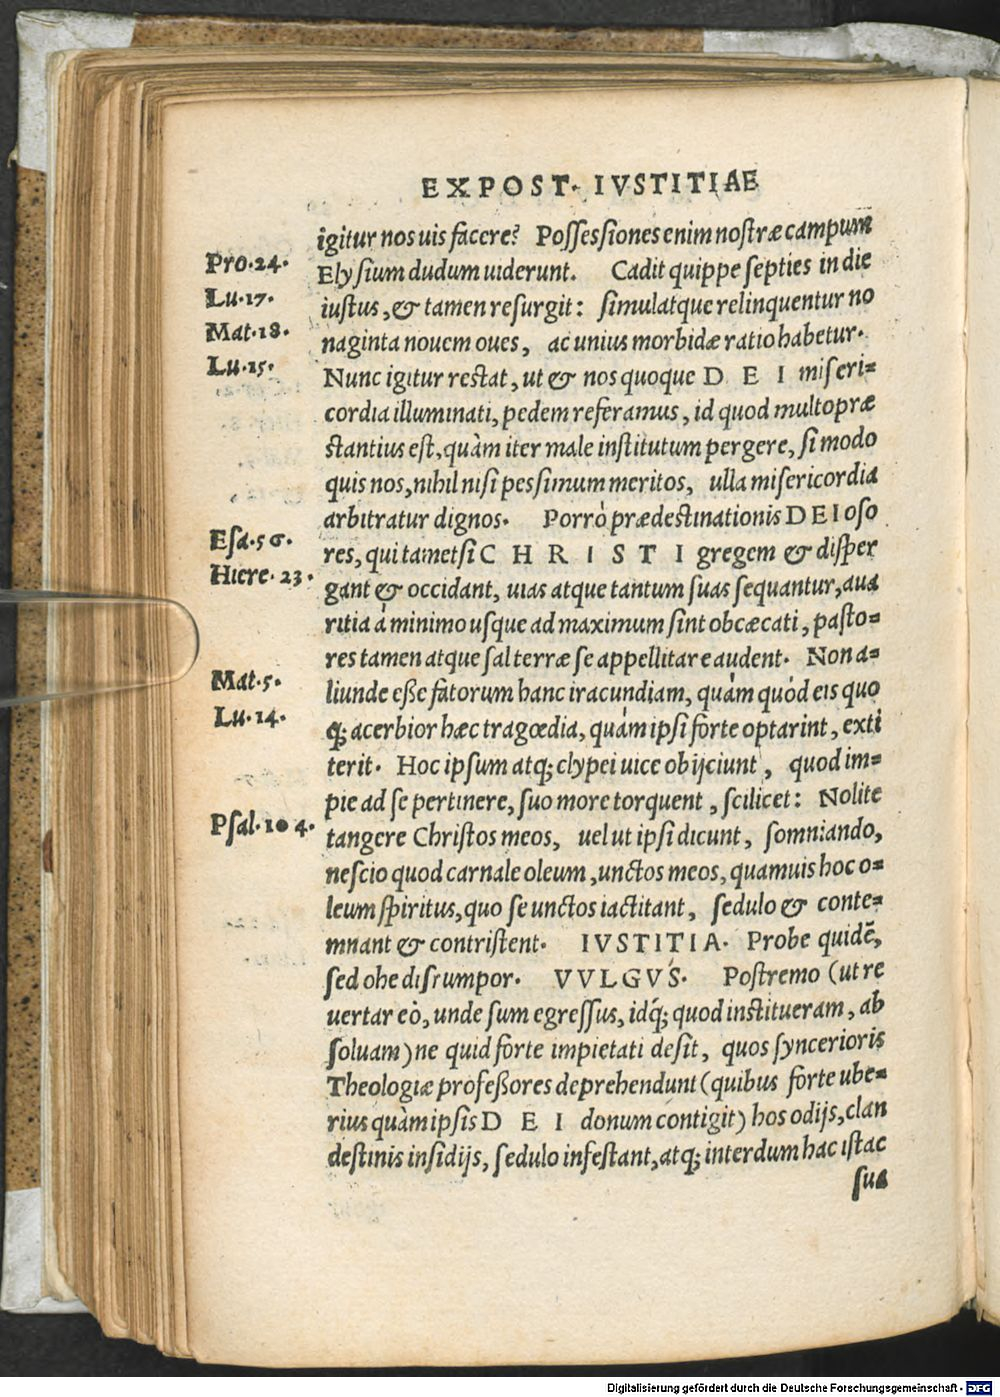 EXPOST. IVSTITIAE
igitur nos uis facere? Possessiones enim nostræ campum
Pro.24.
Elysium dudum uiderunt. Cadit quippe septies in die
Lu.17.
iustus, & tamen resurgit: simulatque relinquentur no
Mat.18.
naginta nouem oues, ac unius morbidæ ratio habetur.
Lu.15.
Nunc igitur restat, ut & nos quoque DEI miseri=
cordia illuminati, pedem referamus, id quod multo præ
stantius est, quàm iter male institutum pergere, si modo
quis nos, nihil nisi pessimum meritos, ulla misericordia
arbitratur dignos. Porrò prædestinationis DEI oso
Esa.56.
res, qui tametsi CHRISTI gregem & disper
Hiere.23.
gant & occidant, uias atque tantum suas sequantur, aua
ritia à minimo usque ad maximum sint obcæcati, pasto=
res tamen atque sal terræ se appellitare audent. Non a=
Mat.5.
liunde esse fatorum hanc iracundiam, quàm quòd eis quo
Lu.14.
q; acerbior hæc tragœdia, quàm ipsi forte optarint, exti
terit. Hoc ipsum atq; clypei uice obijciunt, quod im=
pie ad se pertinere, suo more torquent, scilicet: Nolite
Psal.104.
tangere Christos meos, uel ut ipsi dicunt, somniando,
nescio quod carnale oleum, unctos meos, quamuis hoc o=
leum spiritus, quo se unctos iactitant, sedulo & conte=
mnant & contristent. IVSTITIA. Probe quidē,
sed ohe disrumpor. VVLGVS. Postremo (ut re
uertar eò, unde sum egressus, idq́; quod institueram, ab
soluam) ne quid forte impietati desit, quos syncerioris
Theologiæ professores deprehendunt (quibus forte ube=
rius quàm ipsis DEI donum contigit) hos odijs, clan
destinis insidijs, sedulo infestant, atq; interdum hac istac
sua
Digitalisierung gefördert durch die Deutsche Forschungsgemeinschaft - DFG